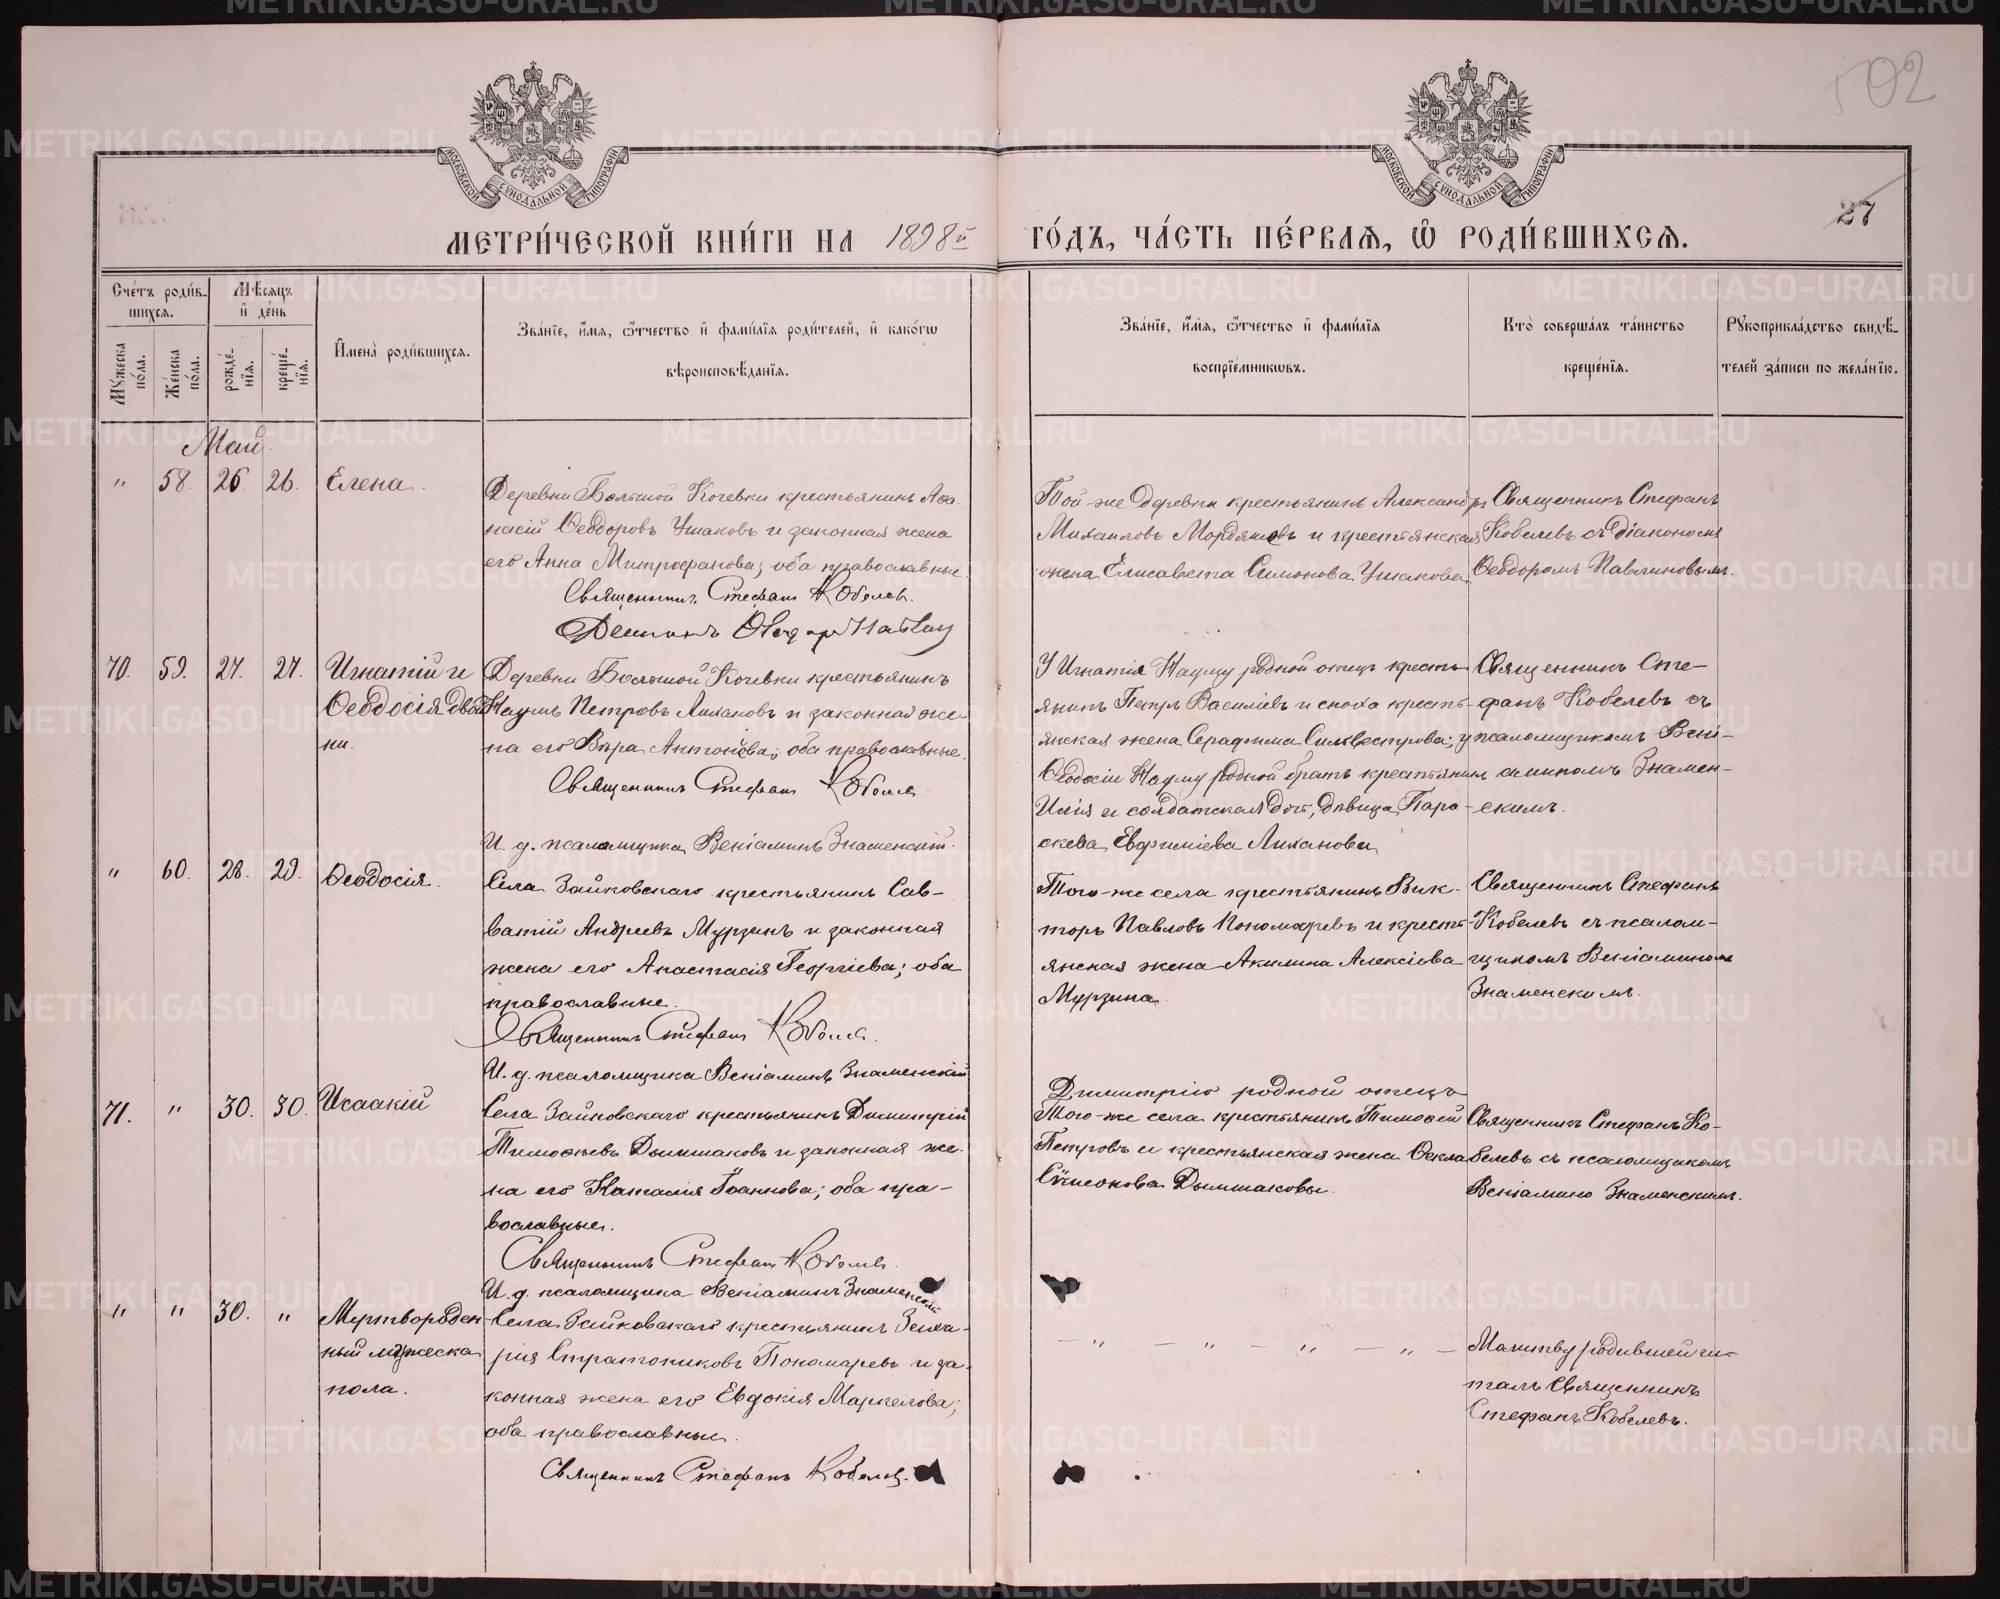 МОСКОВСКОЙ СѴНОДАЛЬНОЙ ТИПОГРАФІИ
МОСКОВСКОЙ СѴНОДАЛЬНОЙ ТИПОГРАФІИ
27
МЕТРИ́ЧЕСКОЙ КНИ́ГИ НА 1898й ГО́ДЪ, ЧА́СТЬ ПЕ́РВАѦ, Ѡ РОДИ́ВШИХСѦ.
Сче́тъ роди́в-
шихсѧ.
Мꙋжеска по́ла.
Же́нска по́ла.
Мѣ́сѧцъ
и де́нь
рожде́-
нїѧ.
креще́-
нїѧ.
Имена̀ роди́вшихсѧ.
Зва́нїе, и́мѧ, ѻ́тчество и фами́лїѧ роди́телей, и како́гѡ
вѣроисповѣ́данїѧ.
Зва́нїе, и́мѧ, ѻ́тчество и фами́лїѧ
воспрїе́мникѡвъ.
Кто̀ соверша́лъ та́инство
креще́нїѧ.
Рꙋкоприкла́дство свидѣ́-
телей за́писи по жела́нїю.
Май.
" 58. 26. 26. Елена.
Деревни Большой Кочевки крестьянинъ Аѳа-
насій Ѳеодоровъ Ушаковъ и законная жена
его Анна Митрофанова; оба православные.
Священникъ Стефанъ Кобелев.
Той-же деревни крестьянинъ Александръ
Михаиловъ и крестьянская
жена Елисавета Симонова Ушакова.
Священникъ Стефанъ
Кобелевъ съ діакономъ
Ѳеодоромъ Павлиновымъ.
70. 59. 27. 27. Игнатій и
Ѳеодосія двой
ни.
Деревни Большой Кочевки крестьянинъ
Наумъ Петровъ Лихановъ и законная же-
на его Вѣра Антонова; оба православные.
Священникъ Стефанъ Кобелев
И. д. псаломщика Веніаминъ Знаменскій.
У Игнатія Науму родной отецъ кресть-
янинъ Петръ Василіевъ и сноха кресть-
янская жена Серафима Силвестрова; у
Ѳеодосіи Науму родной братъ крестьянин
Илія и солдатская дочь, дѣвица Пара-
скева Евфиміева Лиханова
Священникъ Сте-
фанъ Кобелевъ съ
псаломщикомъ Вені-
аминомъ Знамен-
скимъ.
" 60. 28. 29. Ѳеодосія.
Села Зайковскаго крестьянинъ Сав-
ватій Андреевъ Мурзинъ и законная
жена его Анастасія Георгіева; оба
православные.
Священникъ Стефанъ Кобелев.
И. д. псаломщика Веніаминъ Знаменскій
Того-же села крестьянинъ Вик-
торъ Павловъ Пономаревъ и кресть-
янская жена Акилина Алексіева
Мурзина.
Священникъ Стефанъ
Кобелевъ съ псалом-
щикомъ Веніаминомъ
Знаменскимъ.
71. " 30. 30. Исаакій
Села Зайковскаго крестьянинъ Димитрій
Тимоѳеевъ Дымшаковъ и законная же-
на его Наталія Іоаннова; оба пра-
вославные.
Священникъ Стефанъ Кобелев.
И. д. псаломщика Веніаминъ Знаменскій
Димитрію родной отецъ
Того-же села крестьянинъ Тимоѳей
Петровъ и крестьянская жена Ѳекла
Симеонова Дымшаковы.
Священникъ Стефанъ Ко-
белевъ съ псаломщикомъ
Веніамино Знаменскимъ.
" " 30. " Мертворожден
ный мужеска
пола.
Села Зайковскаго крестьянинъ Заха-
рія Стратониковъ Пономаревъ и за-
конная жена его Евдокія Маркелова;
оба православные.
Священникъ Стефанъ Кобелев.
— " — " — " — " —
Молитву родившей чи-
талъ Священникъ
Стефанъ Кобелевъ.
METRIKI.GASO-URAL.RU